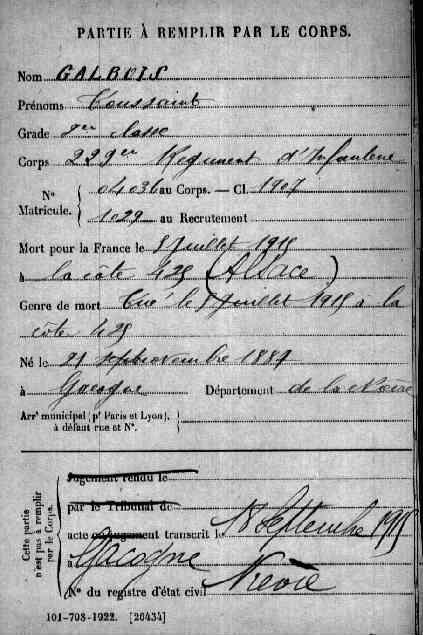 PARTIE À REMPLIR PAR LE CORPS.
Nom GALBOIS
Prénoms Toussaint
Grade 2me classe
Corps 229eme Régiment d'Infanterie
Nº Matricule. 04036 au Corps. — Cl. 1907
1029 au Recrutement
Mort pour la France le 8 Juillet 1915
à la côte 425 (Alsace)
Genre de mort Tué le 8 Juillet 1915 à la
côte 425
Né le novembre 1887
à Gacogne Département de la Nièvre
Arrt municipal (pr Paris et Lyon),
à défaut rue et Nº.
Cette partie
n'est pas à remplir
par le Corps.
Jugement rendu le
par le Tribunal de
acte ou jugement transcrit le 18 Septembre 1915
à Gacogne
Nièvre
Nº du registre d'état civil
101-708-1922. [26434]